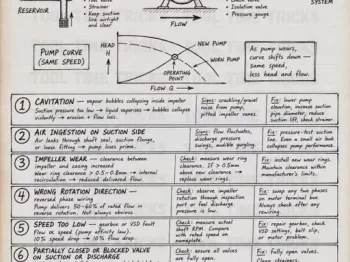 RESERVOIR
• Strainer
• Keep suction
line airtight
and clear
FLOW
• Isolation valve
• Pressure gauge
SYSTEM
PUMP CURVE
(SAME SPEED)
HEAD
H
NEW PUMP
WORN PUMP
OPERATING
POINT
FLOW Q
As pump wears,
curve shifts down —
same speed,
less head and flow.
1 CAVITATION — vapour bubbles collapsing inside impeller
Suction pressure too low → liquid vaporises → bubbles collapse
violently → erosion + flow loss.
Signs: crackling/gravel
noise from pump,
pitted impeller vanes.
Fix: lower pump
elevation, increase suction
pipe diameter, reduce
suction lift, check strainer.
2 AIR INGESTION ON SUCTION SIDE
Air leaks through shaft seal, suction flange,
or loose fitting → pump loses prime.
Signs: flow fluctuates,
discharge pressure
swings, audible surging.
Fix: pressure-test suction
line. Even a small air leak
collapses pump performance.
3 IMPELLER WEAR — clearance between
impeller and casing increased
Wear ring clearance > 0.5–0.8mm → internal
recirculation → reduced delivered flow.
Check: measure wear ring
clearance. If > 0.5mm
above new clearance →
replace wear rings.
Fix: install new wear rings.
Maintain clearance within
manufacturer's limits.
4 WRONG ROTATION DIRECTION —
reversed phase wiring
Pump delivers 50–60% of rated flow in
reverse rotation. Not always obvious.
Check: observe impeller
rotation through inspection
port or feel discharge
pressure is low.
Fix: swap any two phases
on motor terminal box.
Always check after any
rewiring.
5 SPEED TOO LOW — gearbox or VSD fault
Flow ∝ speed (pump affinity law).
10% speed drop → 10% flow drop.
Check: measure actual
shaft RPM. Compare
with rated speed on
nameplate.
Fix: repair gearbox, check
VSD settings, belt slip,
or motor problem.
6 PARTIALLY CLOSED OR BLOCKED VALVE
ON SUCTION OR DISCHARGE
Check: ensure all valves
are fully open.
Fix: fully open valves.
Clean strainers.